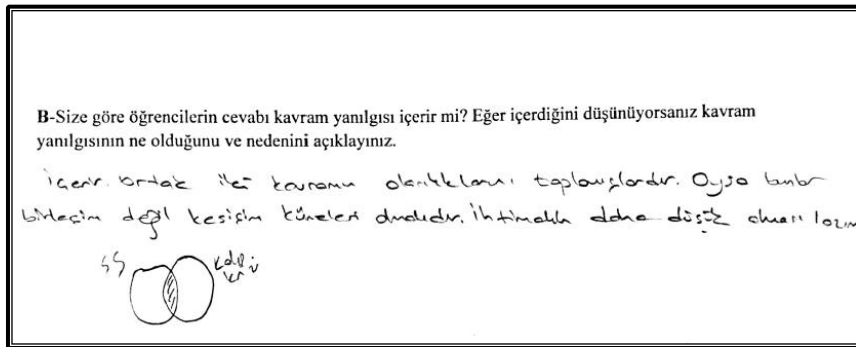 B-Size göre öğrencilerin cevabı kavram yanılgısı içerir mi? Eğer içerdiğini düşünüyorsanız kavram
yanılgısının ne olduğunu ve nedenini açıklayınız.
içerir. ortak iki kavramın olasılıklarını toplamışlardır. Oysa bunlar
birleşim değil kesişim kümeleri olmalıdır. İhtimalin daha düşük olması lazım